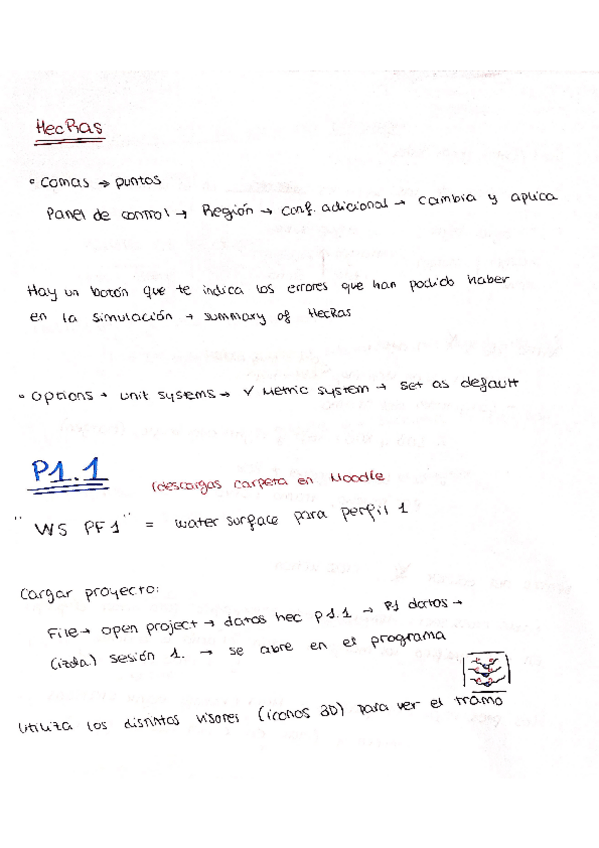 HecRas
• Comas → puntos
Panel de control → Región → conf. adicional → cambia y aplica
Hay un botón que te indica los errores que han podido haber
en la simulación → summary of HecRas
• Options → unit systems → ✓ Metric system → set as default
P1.1
(descargas carpeta en Moodle
"WS PF1" = water surface para perfil 1
Cargar proyecto:
File → open project → datos hec p1.1 → P1 datos →
(izda) sesión 1. → se abre en el programa
Utiliza los distintos visores (iconos 3D) para ver el tramo